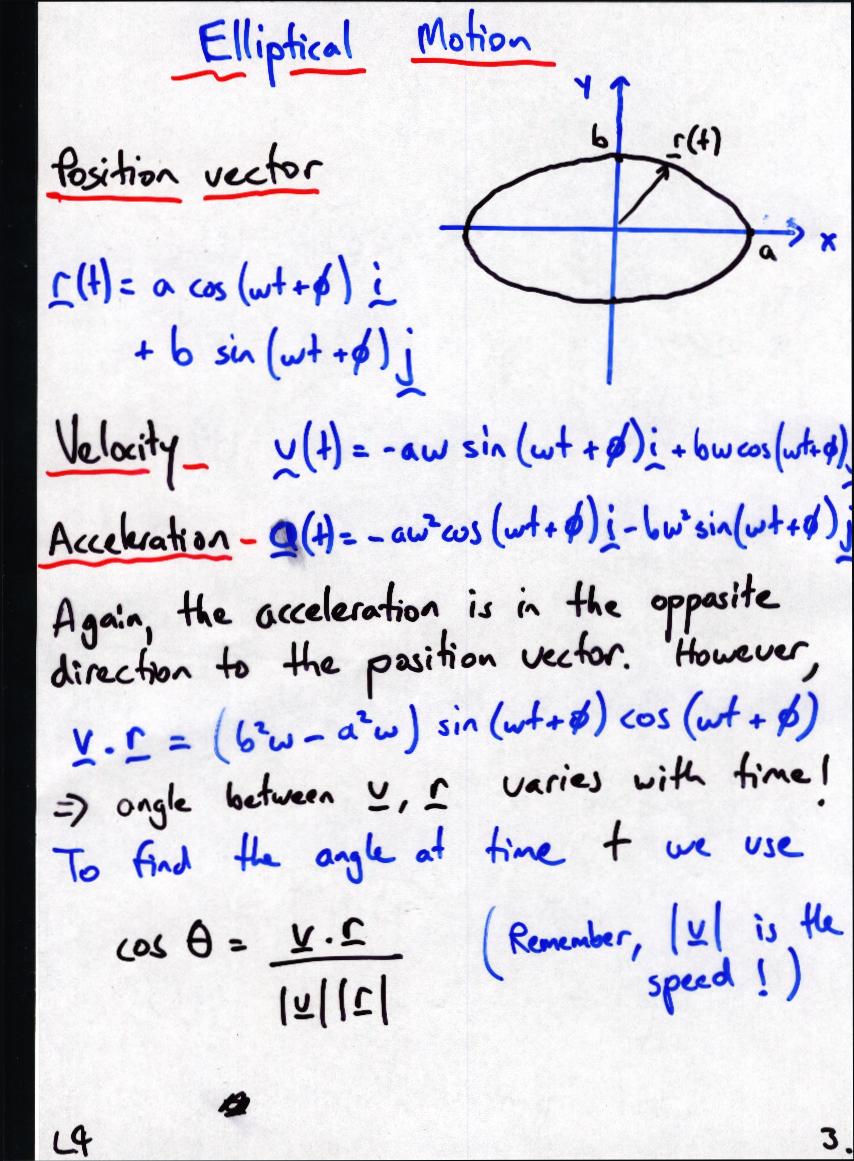 Elliptical Motion
y
b
r(t)
Position vector
x
a
r(t) = a cos (ωt + φ) i
+ b sin (ωt + φ) j
Velocity - v(t) = -aω sin (ωt + φ) i + bω cos(ωt+φ) j
Acceleration - a(t) = - aω² cos (ωt + φ) i - bω² sin(ωt + φ) j
Again, the acceleration is in the opposite
direction to the position vector. However,
v . r = (b²ω - a²ω) sin (ωt + φ) cos (ωt + φ)
⇒ angle between v, r varies with time!
To find the angle at time t we use
cos θ = v . r / |v| |r| (Remember, |v| is the
speed!)
L4 3.